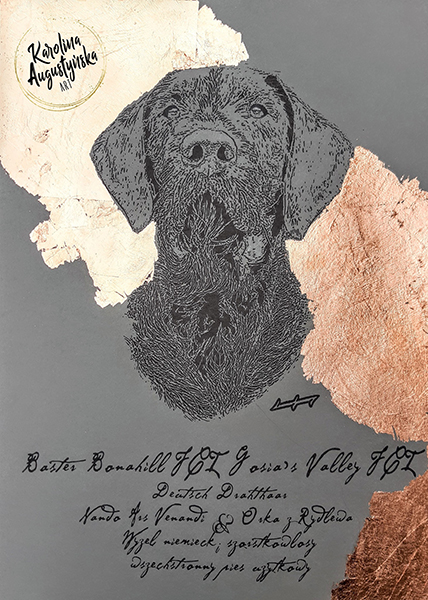 Karolina
Augustyńska
ART
Baster Bonahill FCI Gosia's Valley FCI
Deutsch Drahthaar
Nando Ars Venandi & Orka z Rydlewa
Wyżeł niemiecki szorstkowłosy
wszechstronny pies użytkowy